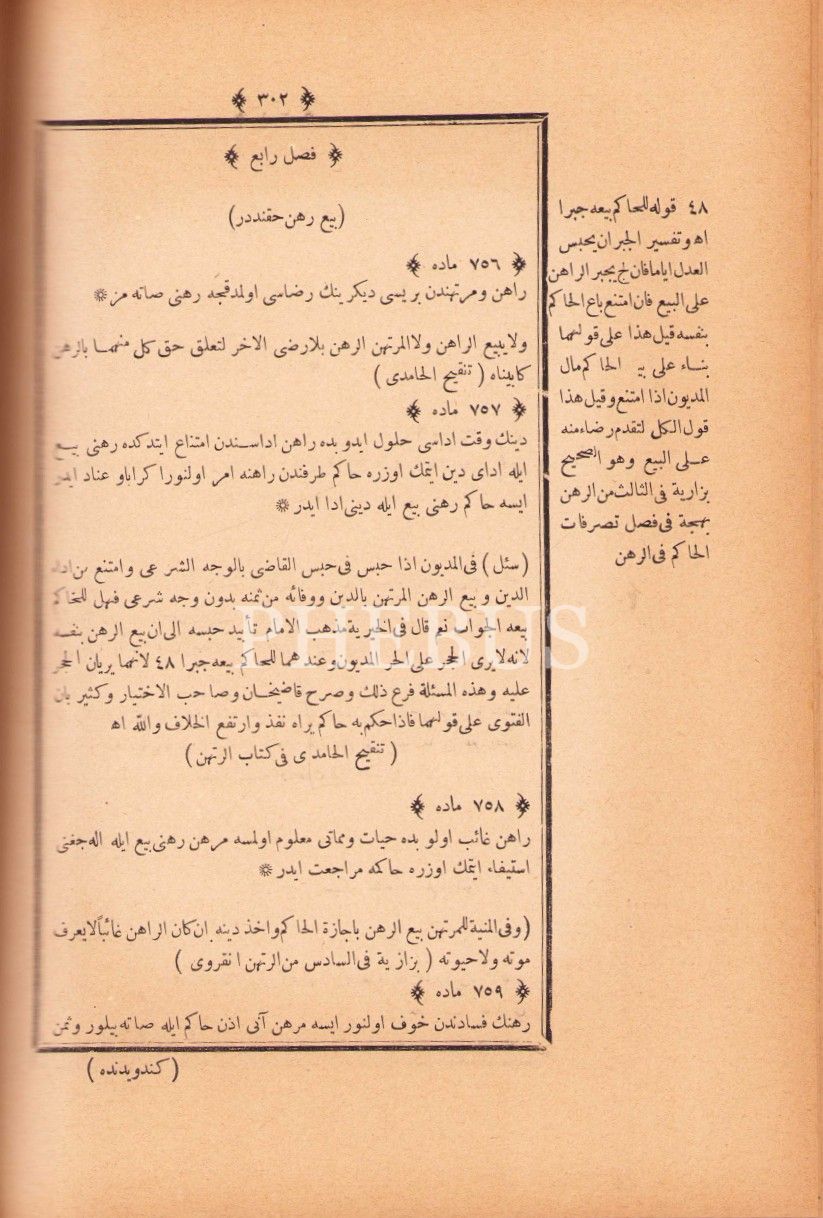 ﴿ ٣٠٢ ﴾
﴿ فصل رابع ﴾
(بيع رهن حقنده در)
﴿ ٧٥٦ ماده ﴾
راهن ومرتهندن بريسى ديكرينك رضاسى اولمدقجه رهنى صاته مز
ولايبيع الراهن ولا المرتهن الرهن بلارضى الاخر لتعلق حق كل منهما بالرهن
كابيناه ( تنقيح الحامدى )
﴿ ٧٥٧ ماده ﴾
دينك وقت اداسى حلول ايدوبده راهن اداسندن امتناع ايتدكده رهنى بيع
ايله اداى دين ايتمك اوزره حاكم طرفندن راهنه امر اولنور اكر اباو عناد ايدر
ايسه حاكم رهنى بيع ايله دينى ادا ايدر
(سئل) فى المديون اذا حبس فى حبس القاضى بالوجه الشرعى وامتنع من اداء
الدين و بيع الرهن المرتهن بالدين ووفائه من ثمنه بدون وجه شرعى فهل للحاكم
بيعه الجواب نعم قال فى الخيرية مذهب الامام تأبيد حبسه الى ان بيع الرهن بنفسه
لانه لايرى الحجر على الحر المديون وعندهما للحاكم بيعه جبرا ٤٨ لانهما يريان الحجر
عليه وهذه المسئلة فرع ذلك وصرح قاضيخان وصاحب الاختيار وكثير بان
الفتوى على قولهما فاذا حكم به حاكم يراه نفذ وارتفع الخلاف والله اه
( تنقيح الحامدى فى كتاب الرتهن )
﴿ ٧٥٨ ماده ﴾
راهن غائب اولوبده حيات ومماتى معلوم اولمسه مرهن رهنى بيع ايله اله جغنى
استيفاء ايتمك اوزره حاكمه مراجعت ايدر
(وفى المنية للمرتهن بيع الرهن باجازة الحاكم واخذ دينه ان كان الراهن غائباً لايعرف
موته ولاحيوته ( بزازية فى السادس من الرتهن انقروى )
﴿ ٧٥٩ ماده ﴾
رهنك فسادندن خوف اولنور ايسه مرهن آنى اذن حاكم ايله صاته بيلور وثمن
(كندويدنده)
٤٨ قوله للحاكم بيعه جبرا
اه وتفسير الجبر ان يحبس
العدل اياما فان لج يجبر الراهن
على البيع فان امتنع باع الحاكم
بنفسه قيل هذا على قولهما
بناء على بيع الحاكم مال
المديون اذا امتنع وقيل هذا
قول الكل لتقدم رضاء منه
على البيع وهو الصحيح
بزازية فى الثالث من الرهن
بهجة فى فصل تصرفات
الحاكم فى الرهن
PHEBUS